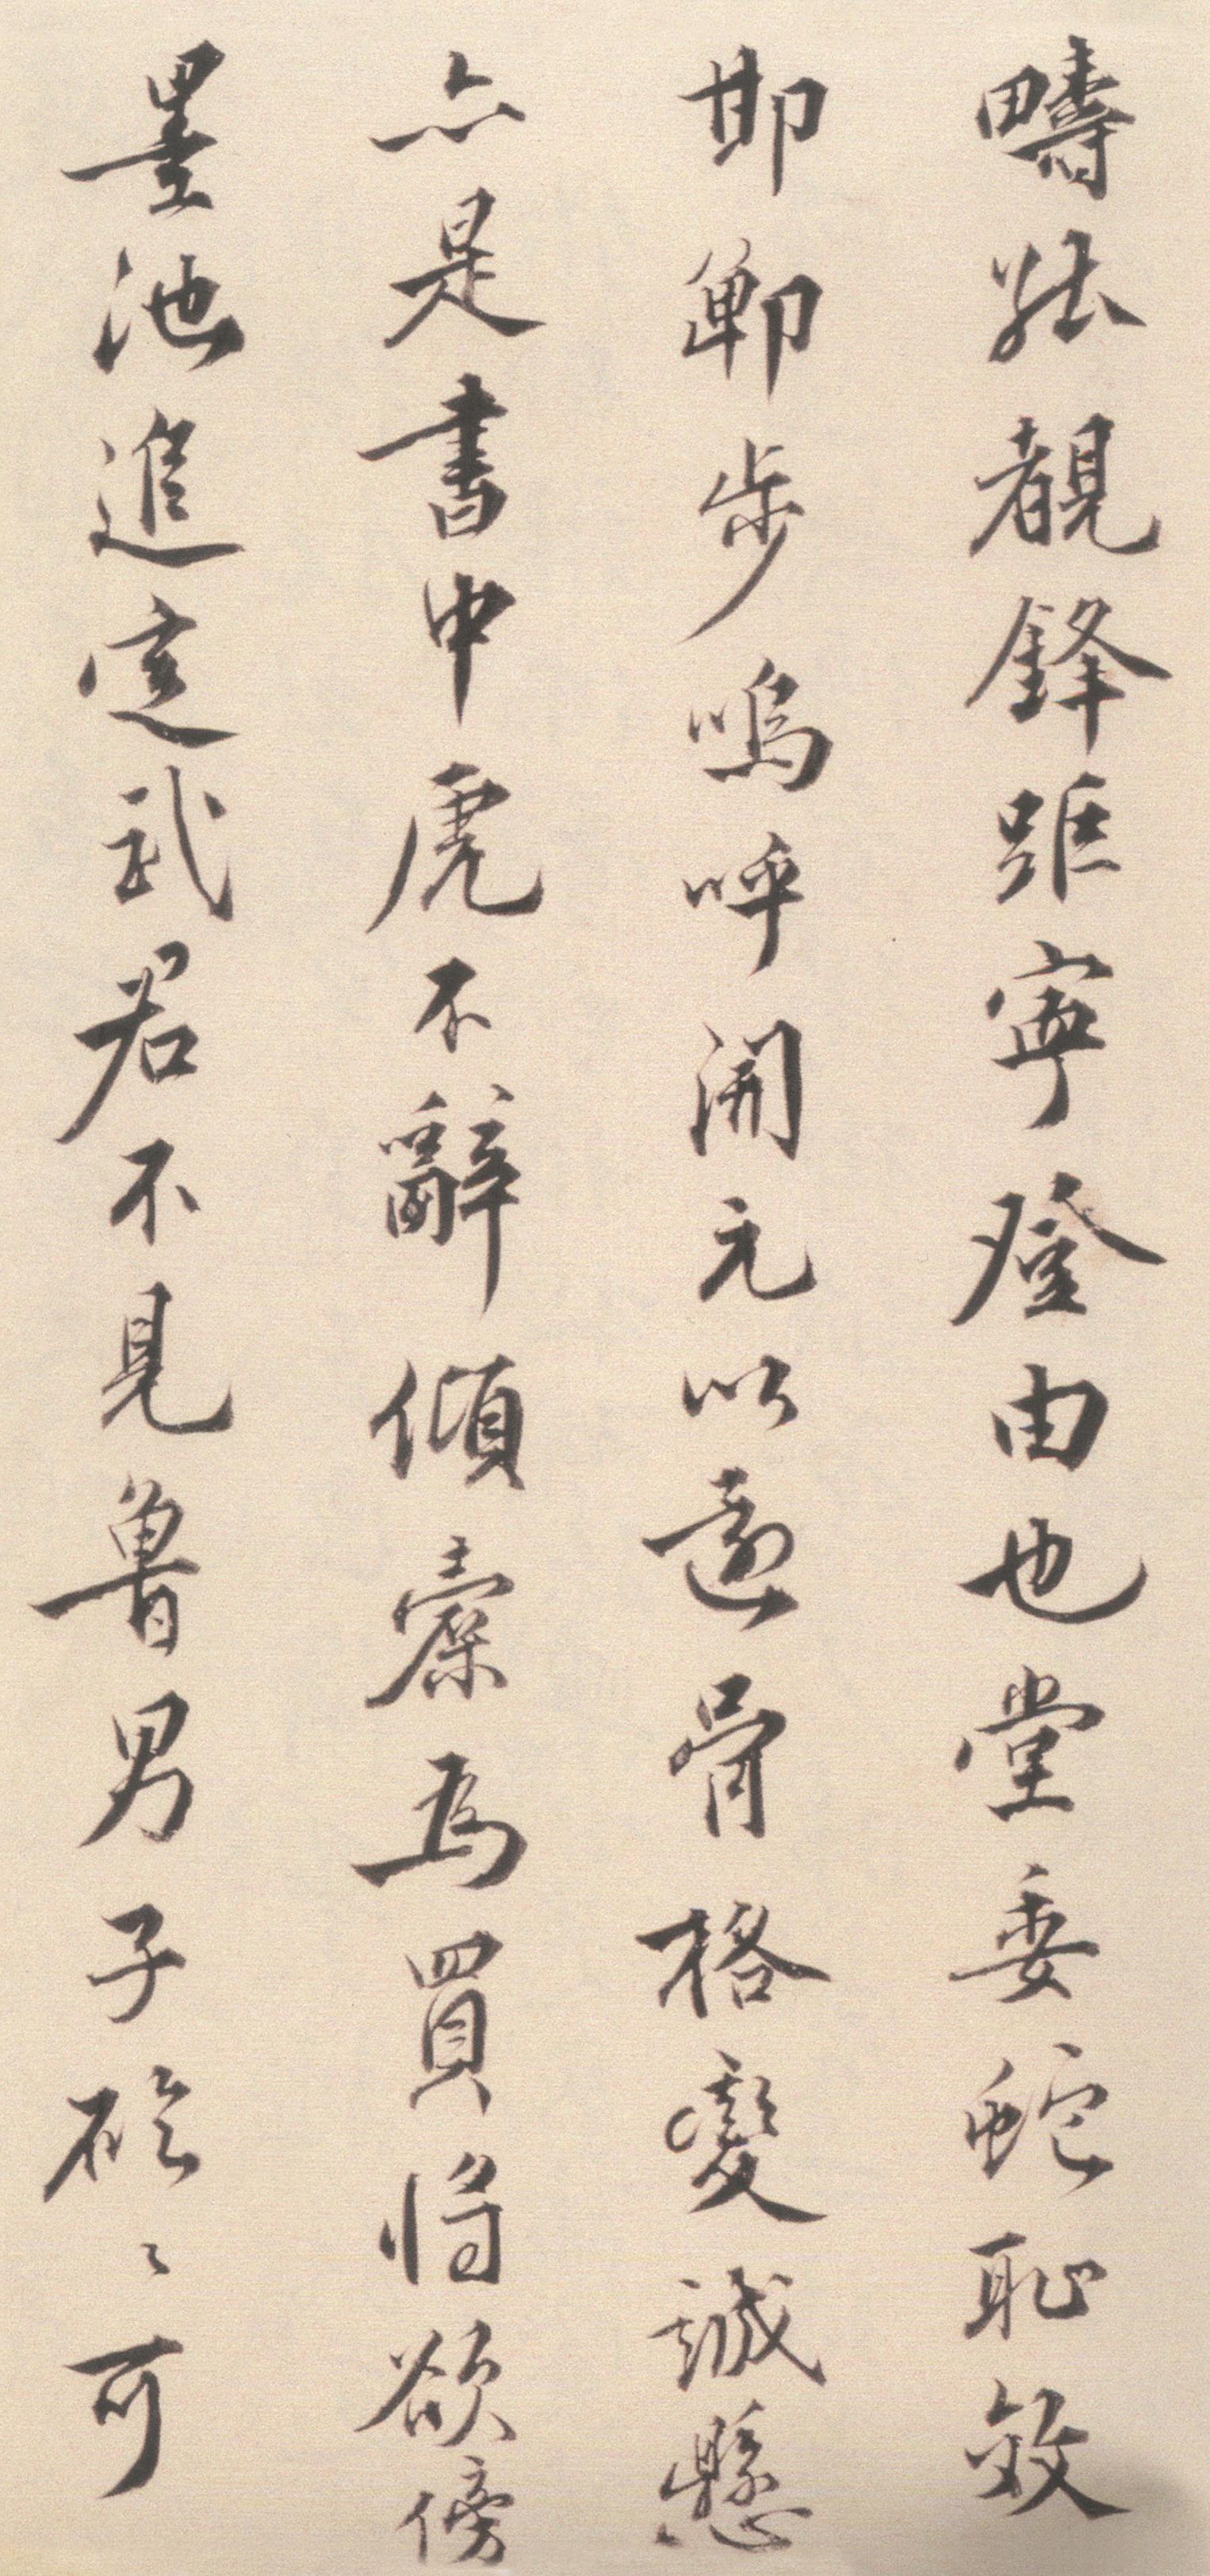 疇能覩鋒距寧登由也堂委蛇恥效
邯鄲步嗚呼開元以還骨格變誠懸
亦是書中虎不辭傾橐爲買將欲傍
墨池追定武君不見魯男子硁〻可